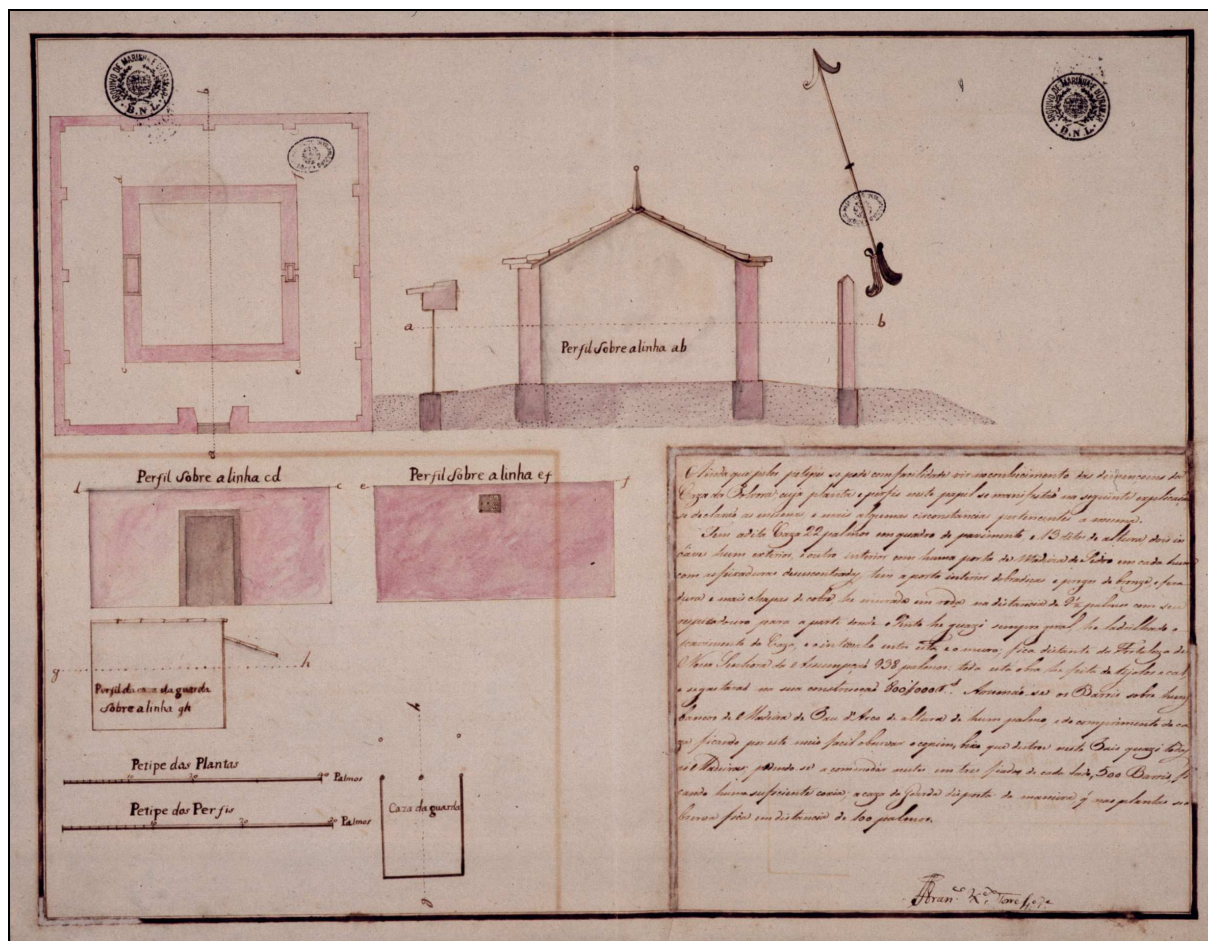 ARQUIVO DE MARINHA E ULTRAMAR
B. N. L.
ARQUIVO DE MARINHA E ULTRAMAR
B. N. L.
b
d
f
c
e
a
a
b
Perfil Sobre a linha ab
Perfil Sobre a linha cd
Perfil Sobre a linha ef
d
c
e
f
g
h
Perfil da caza da guarda
Sobre a linha gh
Petipe das Plantas
10 20 30 Palmos
Petipe dos Perfis
10 20 30 Palmos
h
Caza da guarda
g
Ainda que pelos petipes se pode com facilidade vir no conhecimento das dimençoens da
Caza da Polvora cuja planta e perfis neste papel se manifestaõ na seguinte explicaçaõ
se declaraõ as mesmas, e mais algumas circonstancias pertencentes a mesma.
Tem a dita Caza 22 palmos em quadro de pavimento, e 13 ditos de altura dois
hum exterior, e outro interior com huma porta de Madeira de Sedro em cada hum
com as feixaduras desencontradas, tem a porta interior dobradiças e pregos de bronze, e feixa
dura e mais chapas de cobre, he murada em roda na distancia de 9½ palmos com seu
para a parte donde o Vento he quazi sempre geral, he ladrilhado o
pavimento da Caza, e o intervalo entre esta, e o muro: fica distante da Fortaleza de
N. Senhora da Assumpçaõ 938 palmos: toda esta obra he feita de tijolos e cal,
e se gastaraõ na sua construcçaõ 800$000 rs. Arrumaõ-se os Barris sobre huns
bancos de Madeira de Pau d'Arco de altura de hum palmo, e do comprimento da ca
za ficando por este meio facil observar o copim, bixo que destroe neste Paiz quazi todas
as Madeiras; podem-se acomodar nella, em tres fiadas de cada lado, 500 Barris, fi
cando huma suficiente coxia; a caza da Guarda disposta da maneira q̃ nas plantas se
observa fica em distancia de 100 palmos.